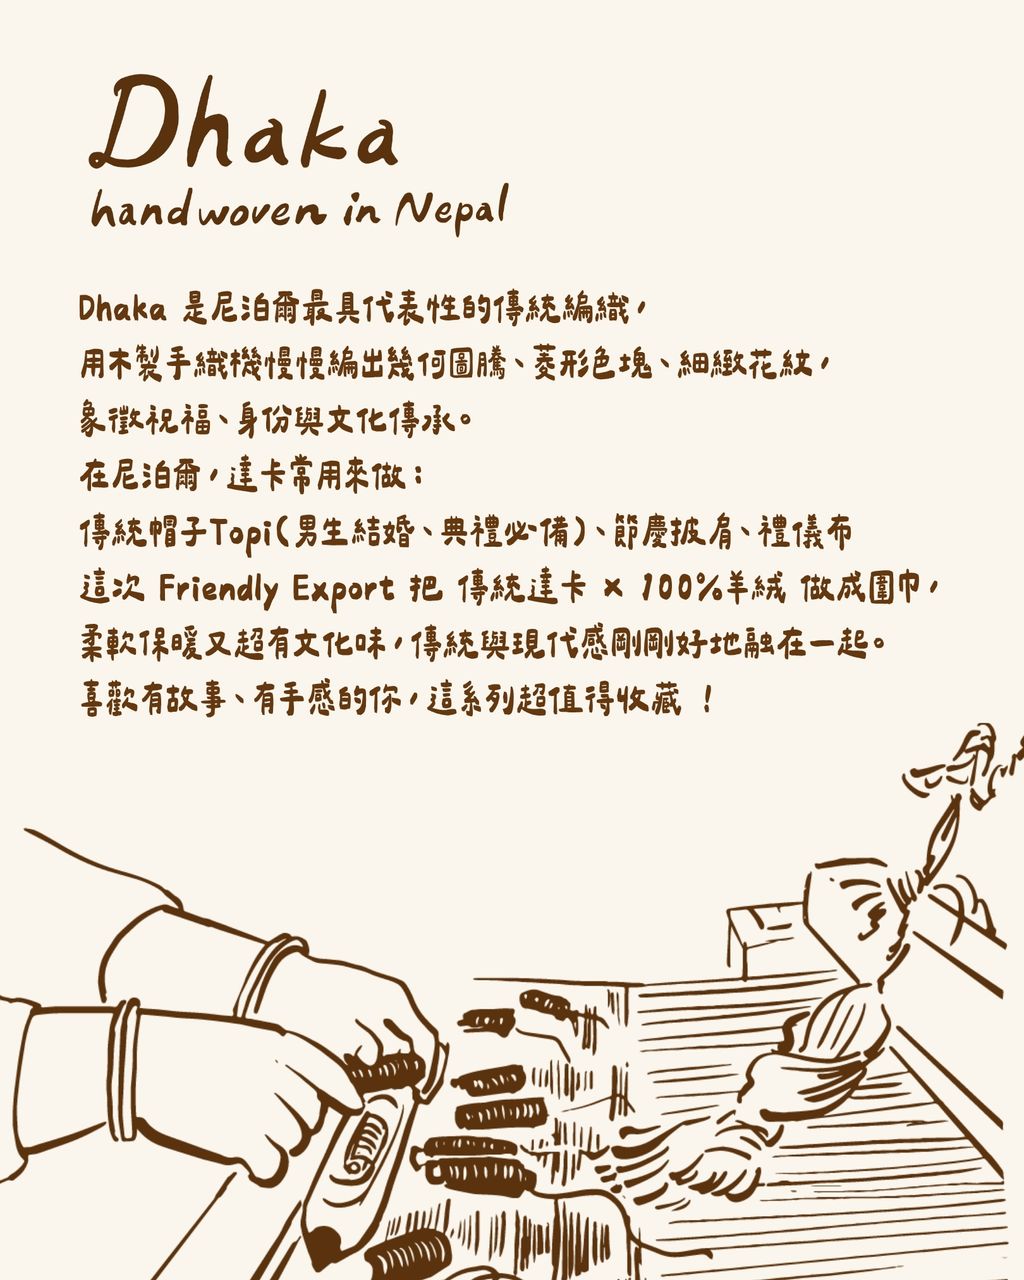 Dhaka
handwoven in Nepal
Dhaka 是尼泊爾最具代表性的傳統編織，
用木製手織機慢慢編出幾何圖騰、菱形色塊、細緻花紋，
象徵祝福、身份與文化傳承。
在尼泊爾，達卡常用來做：
傳統帽子Topi(男生結婚、典禮必備)、節慶披肩、禮儀布
這次 Friendly Export 把 傳統達卡 × 100%羊絨 做成圍巾，
柔軟保暖又超有文化味，傳統與現代感剛剛好地融在一起。
喜歡有故事、有手感的你，這系列超值得收藏 ！